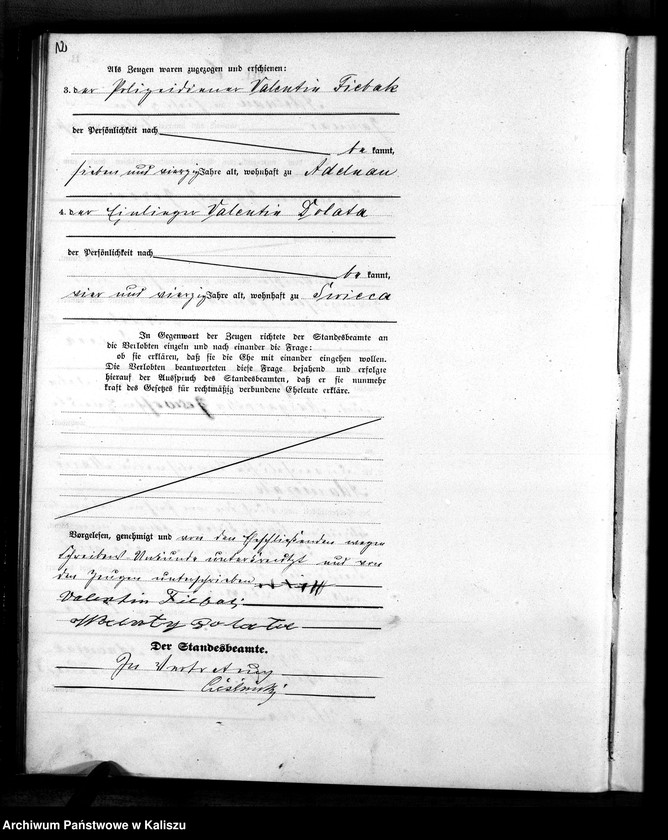 Als Zeugen waren zugezogen und erschienen:
3. der Polizeidiener Valentin Ficbak
der Persönlichkeit nach
be kannt,
sieben und vierzig Jahre alt, wohnhaft zu Adelnau
4. der Einlieger Valentin Dolata
der Persönlichkeit nach
be kannt,
vier und vierzig Jahre alt, wohnhaft zu Swieca
In Gegenwart der Zeugen richtete der Standesbeamte an
die Verlobten einzeln und nach einander die Frage:
ob sie erklären, daß sie die Ehe mit einander eingehen wollen.
Die Verlobten beantworteten diese Frage bejahend und erfolgte
hierauf der Ausspruch des Standesbeamten, daß er sie nunmehr
kraft des Gesetzes für rechtmäßig verbundene Eheleute erkläre.
Vorgelesen, genehmigt und von den Eheschließenden wegen
Schreibens Unkunde unterkreuzt und von
den Zeugen unterschrieben
Valentin
Dolata
Der Standesbeamte.
In Vertretung
Archiwum Państwowe w Kaliszu